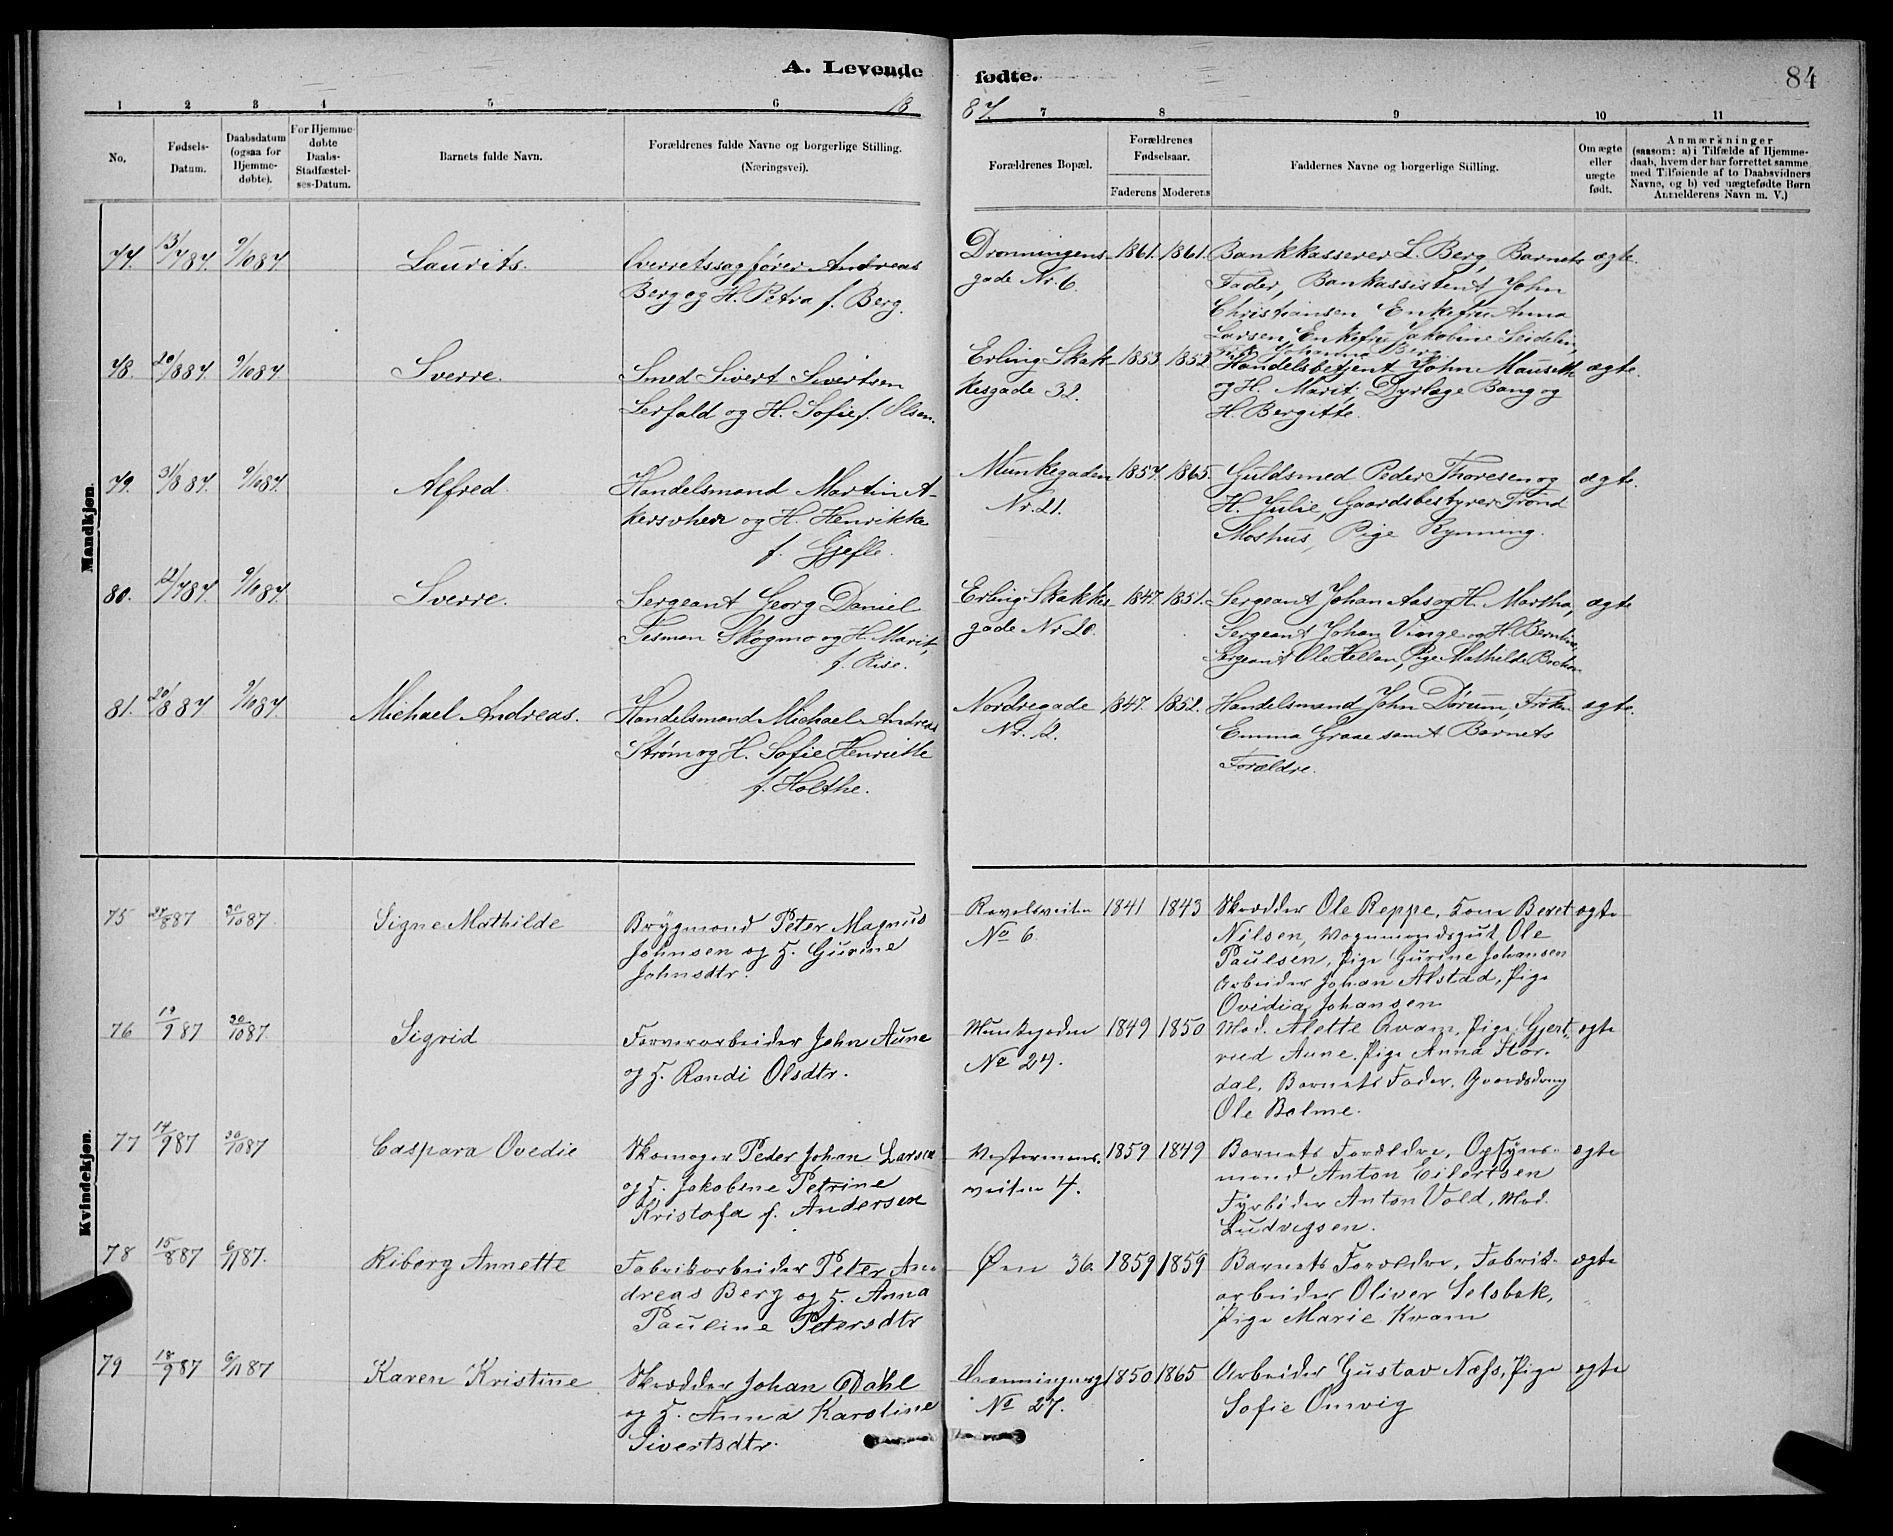 A. Levende fødte.
84
18 87
1 2 3 4 5 6 7 8 9 10 11
No.
Fødsels-Datum.
Daabsdatum (ogsaa for Hjemme-døbte).
For Hjemme-døbte Daabs-Stadfæstel-ses-Datum.
Barnets fulde Navn.
Forældrenes fulde Navne og borgerlige Stilling. (Næringsvei).
Forældrenes Bopæl.
Forældrenes Fødselsaar.
Faderens Moderens
Faddernes Navne og borgerlige Stilling.
Om ægte eller uægte født.
Anmærkninger (saasom: a) i Tilfælde af Hjemme-daab, hvem der har forrettet samme, med Tilføiende af to Daabsvidners Navne, og b) ved uægtefødte Børn Anmelderens Navn m. V.)
Mandkjøn.
77. 13/7 87. 9/10 87. Laurits. Overretssagfører Andreas
Berg og H. Petra f. Berg.
Dronningens
gade Nr. 6.
1861. 1861.
Bankkasserer L. Berg, Barnets
Fader, Bankassistent John
Christiansen Enkefru Anna
Larsen, Enkefru Jakobine Seidelin,
Frk. Johanna Berg
ægte.
78. 20/8 87. 9/10 87. Sverre. Smed Sivert Sivertsen
Lerfald og H. Sofie f. Olsen.
Erling Skak-
kesgade 32.
1853 1852
Handelsbetjent John Mauseth
og H. Marit, Dyrlæge Bang og
H. Bergitte.
ægte.
79. 31/8 87. 9/10 87. Alfred. Handelsmand Martin A-
og H. Henrikke
f. Gjefle.
Munkegaden
Nr. 21.
1857 1865.
Guldsmed Peder Thoresen og
H. Julie, Gaardsbestyrer Trond
Moshus, Pige Rynning.
ægte.
80. 12/7 87. 9/10 87. Sverre. Sergeant Georg Daniel
Tesman Skogmo og H. Marit,
f. Rise.
Erling Skakkes
gade Nr 20.
1847. 1851.
Sergeant Johan Aas og H. Martha,
Sergeant Johan Vinge og H. Berntine,
Sergeant Ole Hellan, Pige Mathilde
ægte
81. 20/8 87 9/10 87 Michael Andreas. Handelsmand Michael Andreas
Strøm og H. Sofie Henriette
f. Holthe.
Nordregade
Nr. 12.
1847. 1852.
Handelsmand John Dørum, Frøken
Emma Graae samt Barnets
Forældre.
ægte.
Kvindekjøn.
75 27/8 87 30/10 87. Signe Mathilde Brygmand Peter Magnus
Johnsen og H. Gurine
Johnsdtr.
Ravelsveiten
No 6.
1841 1843
Skrædder Ole Reppe, Kone Beret
Nilsen, Vognmandsgut Ole
Paulsen, Pige Gurine Johansen
Arbeider Johan Alstad, Pige
Ovidia Johansen
ægte
76 19/9 87 30/10 87. Sigrid Farverarbeider John Aune
og H. Randi Olsdtr.
Munkegaden
No 27.
1849 1850
Mad. Alette Qvam, Pige Gjert-
rud Aune, Pige Anna Stor-
dal, Barnets Fader, Gaardsdreng
Ole Balme.
ægte
77 14/9 87 30/10 87 Caspara Ovedie Skomager Peder Johan Larsen
og H. Jakobine Petrine
Kristofa f. Andersen
Vestermans-
veiten 4.
1859 1849
Barnets Forældre, Opsyns-
mand Anton Eilertsen
Fyrbøder Anton Vold, Mad.
Ludvigsen.
ægte
78 15/8 87 6/11 87. Riborg Annette Fabrikarbeider Peter An-
dreas Berg og H. Anna
Pauline Petersdtr
Øen 36. 1859 1859
Barnets Forældre, Fabrik-
arbeider Oliver Selsbak,
Pige Marie Kvam
ægte
79 18/9 87 6/11 87 Karen Kristine Skrædder Johan Dahl
og H. Anna Karoline
Sivertsdtr.
Dronningensg
No 27.
1850 1865
Arbeider Gustav Næss, Pige
Sofie Omvig
ægte